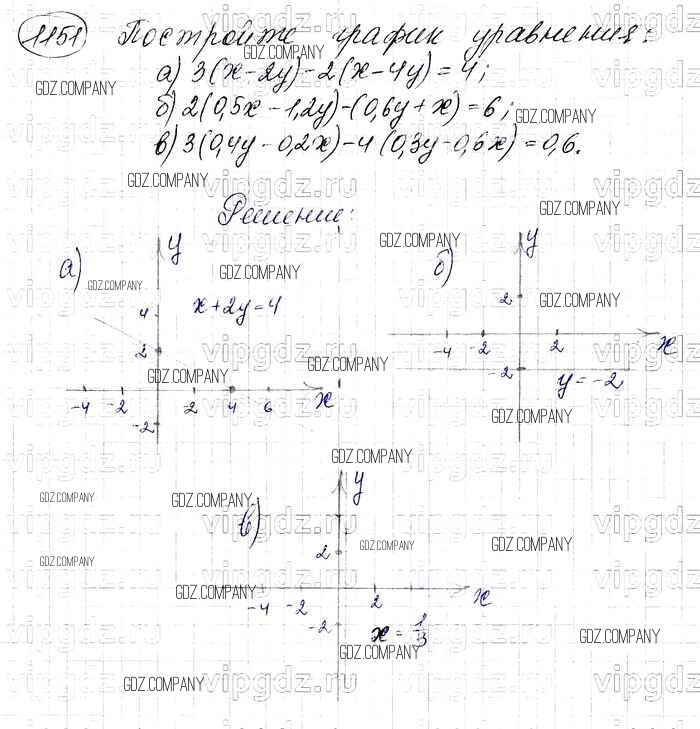 1151 Постройте график уравнения:
а) 3(x-2y)-2(x-4y)=4;
б) 2(0,5x-1,2y)-(0,6y+x)=6;
в) 3(0,4y-0,2x)-4(0,3y-0,6x)=0,6.
Решение:
а)
y
x+2y=4
4
2
-4 -2 2 4 6 x
-2
б)
y
2
-4 -2 2 x
-2
y=-2
в)
y
2
-4 -2 2 x
-2
x=1/3
GDZ.COMPANY
vipgdz.ru